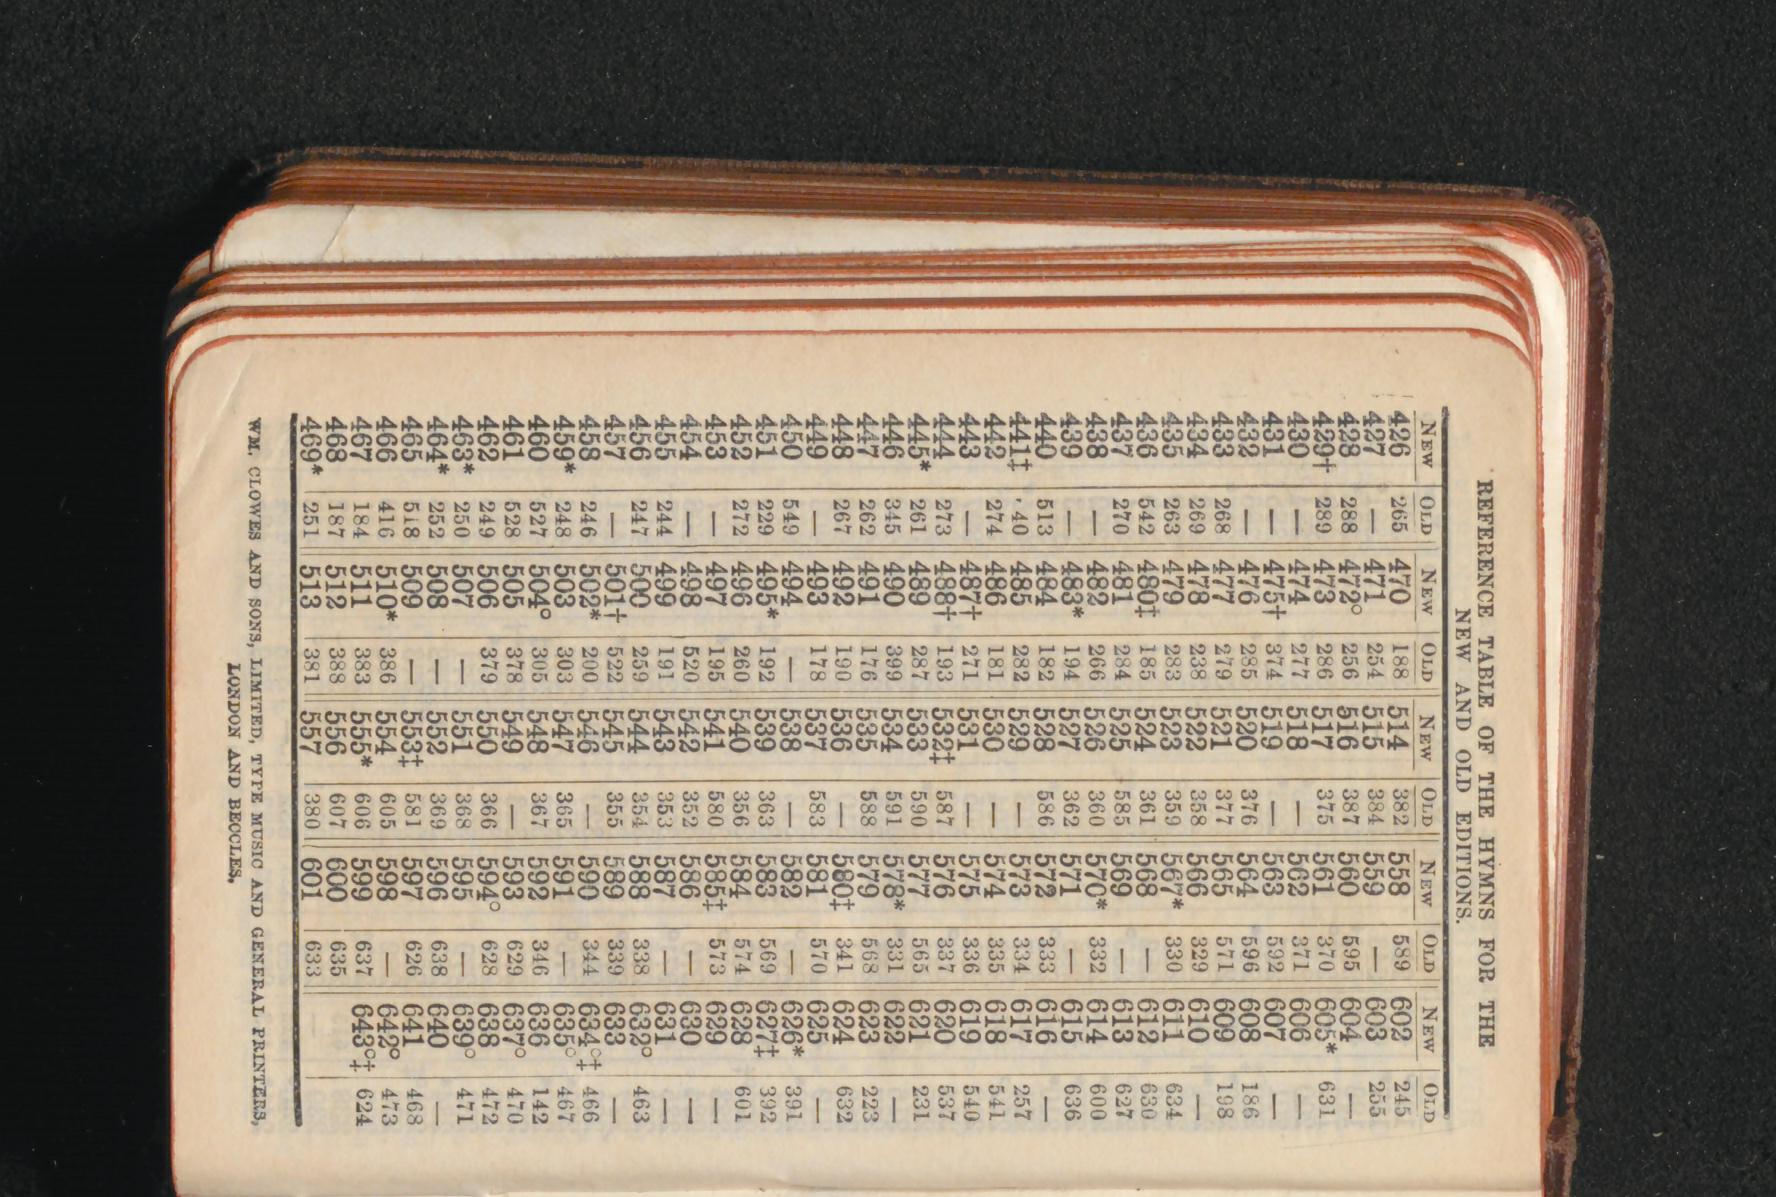 REFERENCE TABLE OF THE HYMNS FOR THE
NEW AND OLD EDITIONS.
NEW OLD NEW OLD NEW OLD NEW OLD NEW OLD
426 265 470 188 514 382 558 589 602 245
427 — 471 254 515 384 559 — 603 255
428 288 472° 256 516 387 560 595 604 —
429† 289 473 286 517 375 561 370 605* 631
430 — 474 277 518 — 562 371 606 —
431 — 475† 374 519 — 563 592 607 —
432 — 476 285 520 376 564 596 608 186
433 268 477 279 521 377 565 571 609 198
434 269 478 238 522 358 566 329 610 —
435 263 479 283 523 359 567* 330 611 634
436 542 480‡ 185 524 361 568 — 612 630
437 270 481 284 525 585 569 — 613 627
438 — 482 266 526 360 570* 332 614 600
439 — 483* 194 527 362 571 — 615 636
440 513 484 182 528 586 572 333 616 —
441‡ 40 485 282 529 — 573 334 617 257
442 274 486 181 530 — 574 335 618 541
443 — 487† 271 531 — 575 336 619 540
444 273 488† 193 532‡ 587 576 337 620 537
445* 261 489 287 533 590 577 565 621 231
446 345 490 399 534 591 578* 331 622 —
447 262 491 176 535 588 579 568 623 223
448 267 492 190 536 — 580‡ 341 624 632
449 — 493 178 537 583 581 570 625 —
450 549 494 — 538 — 582 — 626* 391
451 229 495* 192 539 363 583 569 627‡ 392
452 272 496 260 540 356 584 574 628 601
453 — 497 195 541 580 585‡ 573 629 —
454 — 498 520 542 352 586 — 630 —
455 244 499 191 543 353 587 — 631 —
456 247 500 259 544 354 588 338 632° 463
457 — 501† 522 545 355 589 339 633 —
458 246 502* 200 546 — 590 344 634°‡ 466
459* 248 503 303 547 365 591 — 635° 467
460 527 504° 305 548 367 592 346 636 142
461 528 505 378 549 — 593 629 637° 470
462 249 506 379 550 366 594° 628 638 472
463* 250 507 — 551 368 595 — 639° 471
464* 252 508 — 552 369 596 638 640 —
465 518 509 — 553‡ 581 597 626 641 468
466 416 510* 386 554 605 598 — 642° 473
467 184 511 383 555* 606 599 637 643°‡ 624
468 187 512 388 556 607 600 635
469* 251 513 381 557 380 601 633
WM. CLOWES AND SONS, LIMITED, TYPE MUSIC AND GENERAL PRINTERS,
LONDON AND BECCLES.